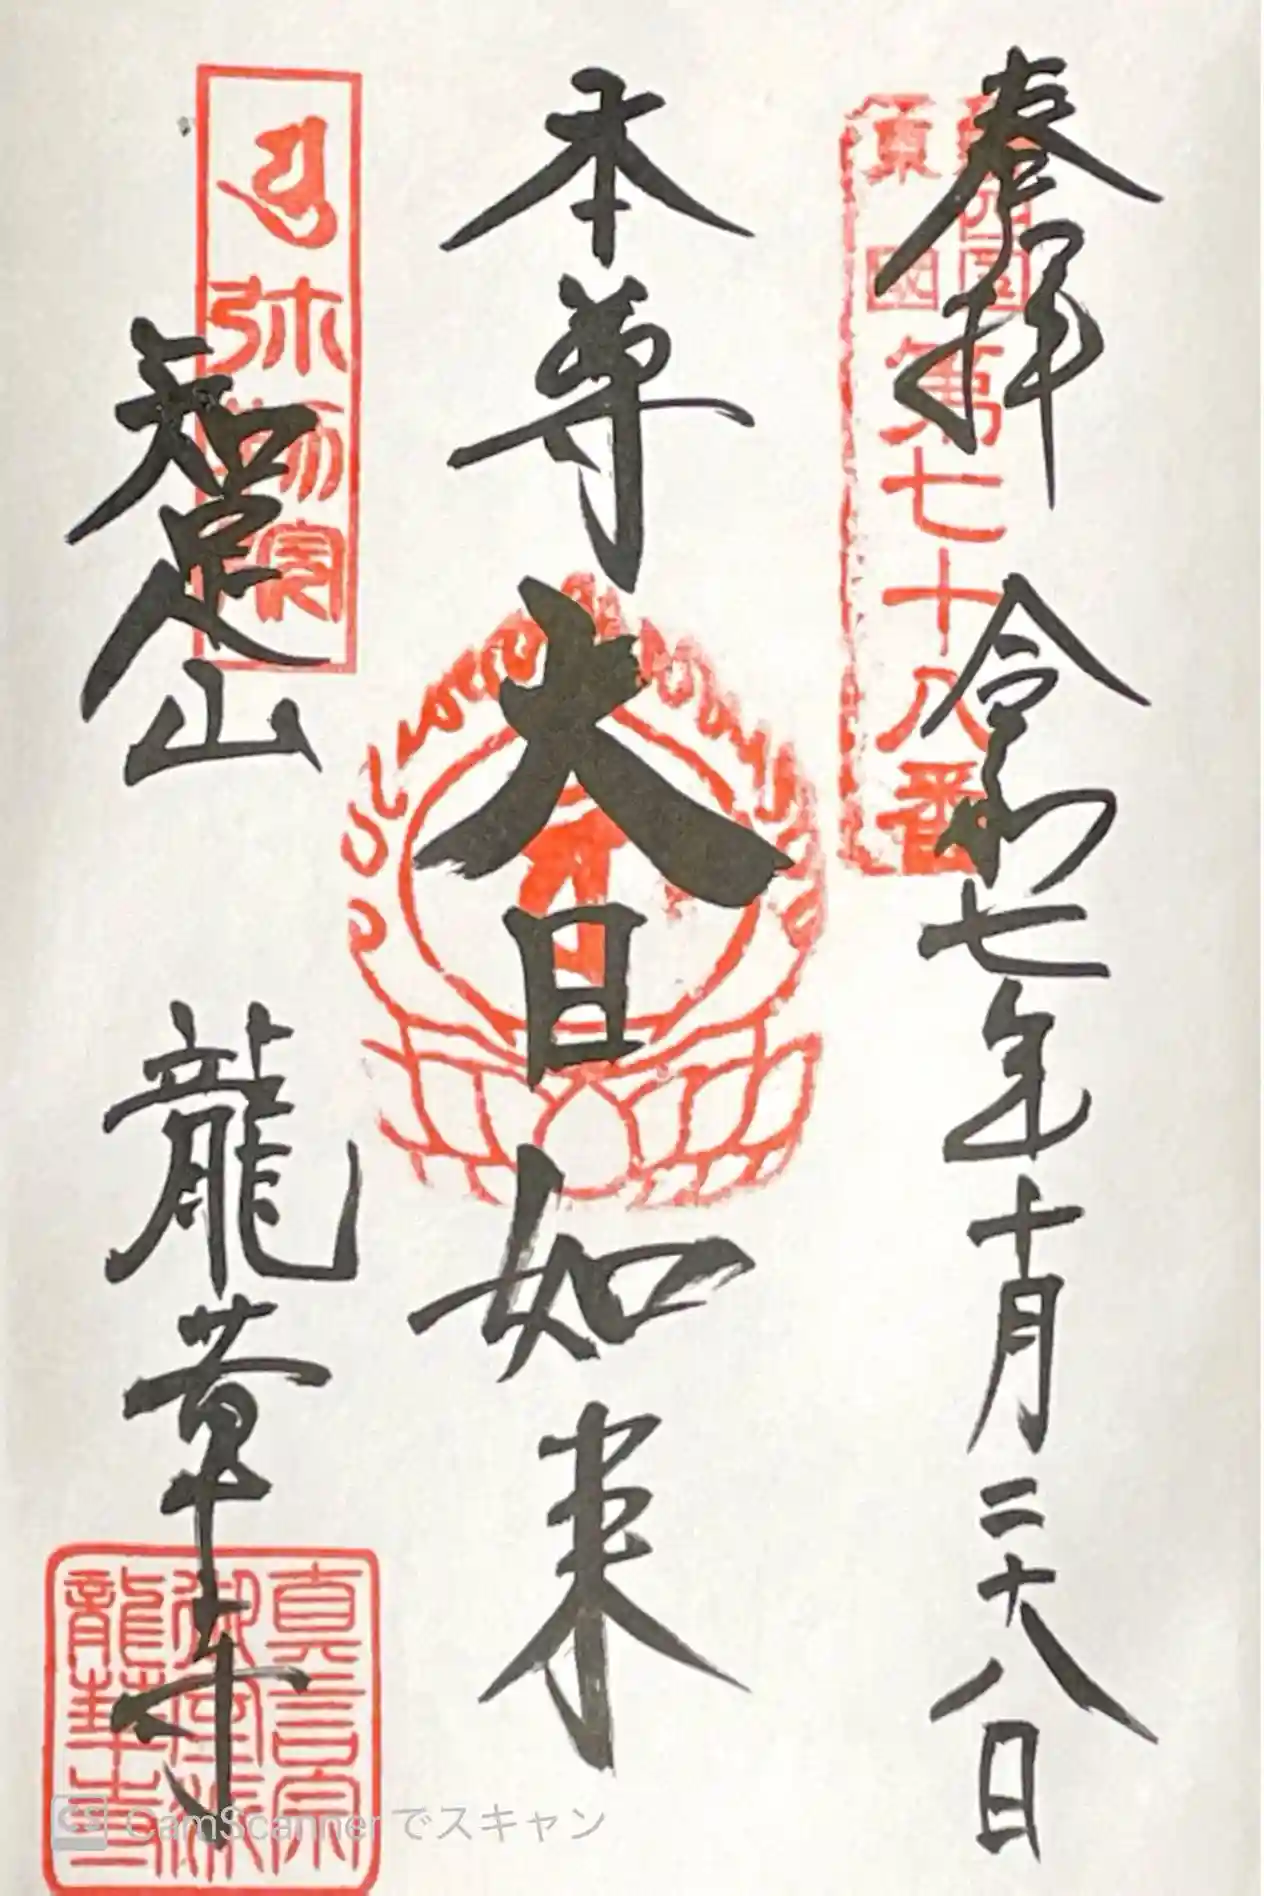 奉拝 令和七年十月二十八日
四国
東國
第七十八番
本尊 大日如来
弥勒院
知足山 龍華寺
真言宗
御室派
龍華寺
CS CamScanner でスキャン